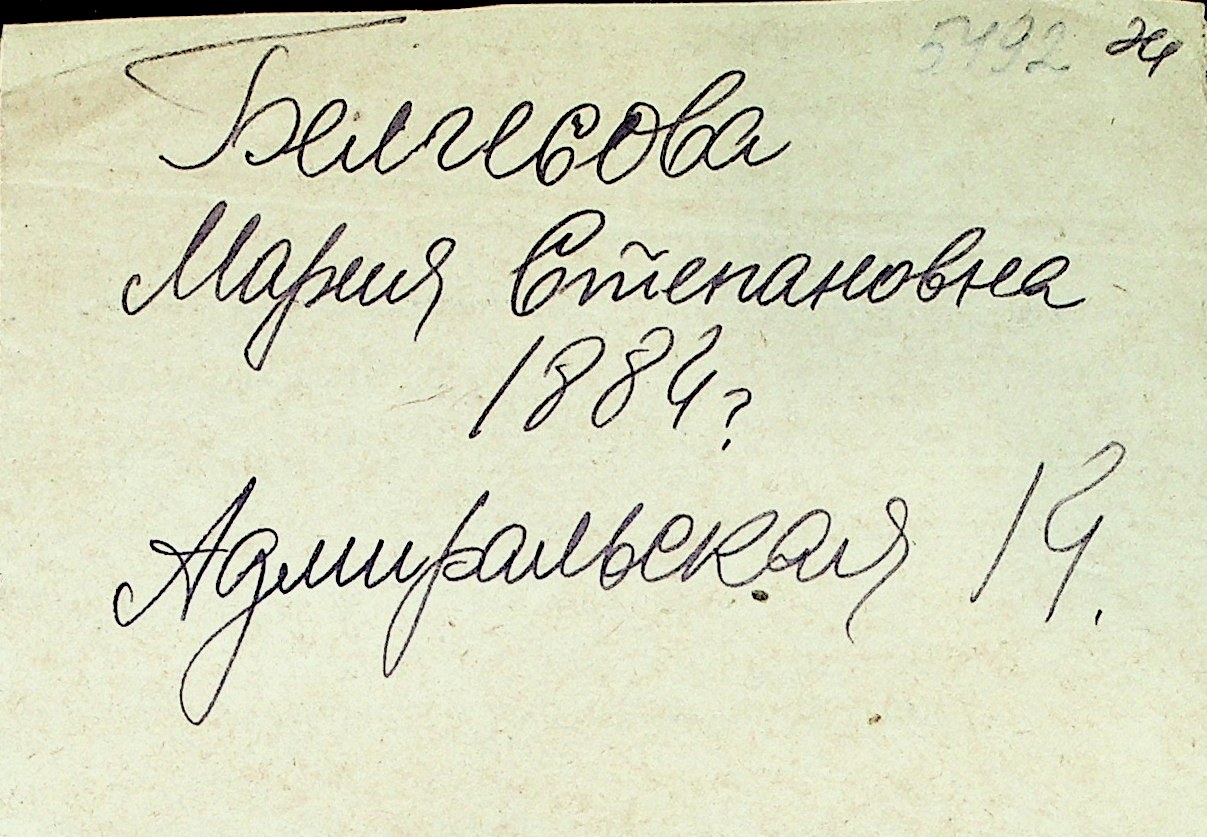 5492 ж
Белгесова
Мария Степановна
1884?
Адмиральская 14.